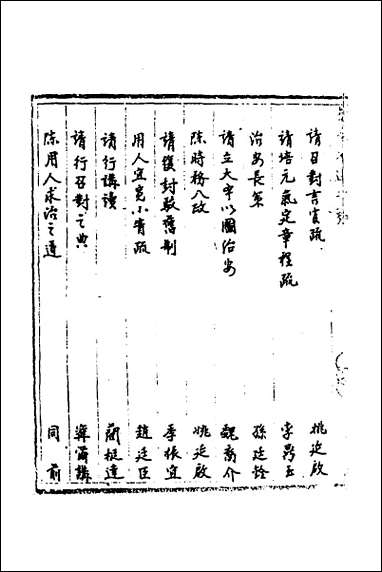 請召對言官疏 姚廷啟
請培元氣定章程疏 李昌玉
治安長策 孫廷銓
請立大宇以圖治安 魏裔介
陳時務八政 姚廷啟
請復封駁舊制 季振宜
用人宜寬小眚疏 趙廷臣
請行講讀 蘭挺達
請行召對之典 冀爾講
陳用人求治之道 同前